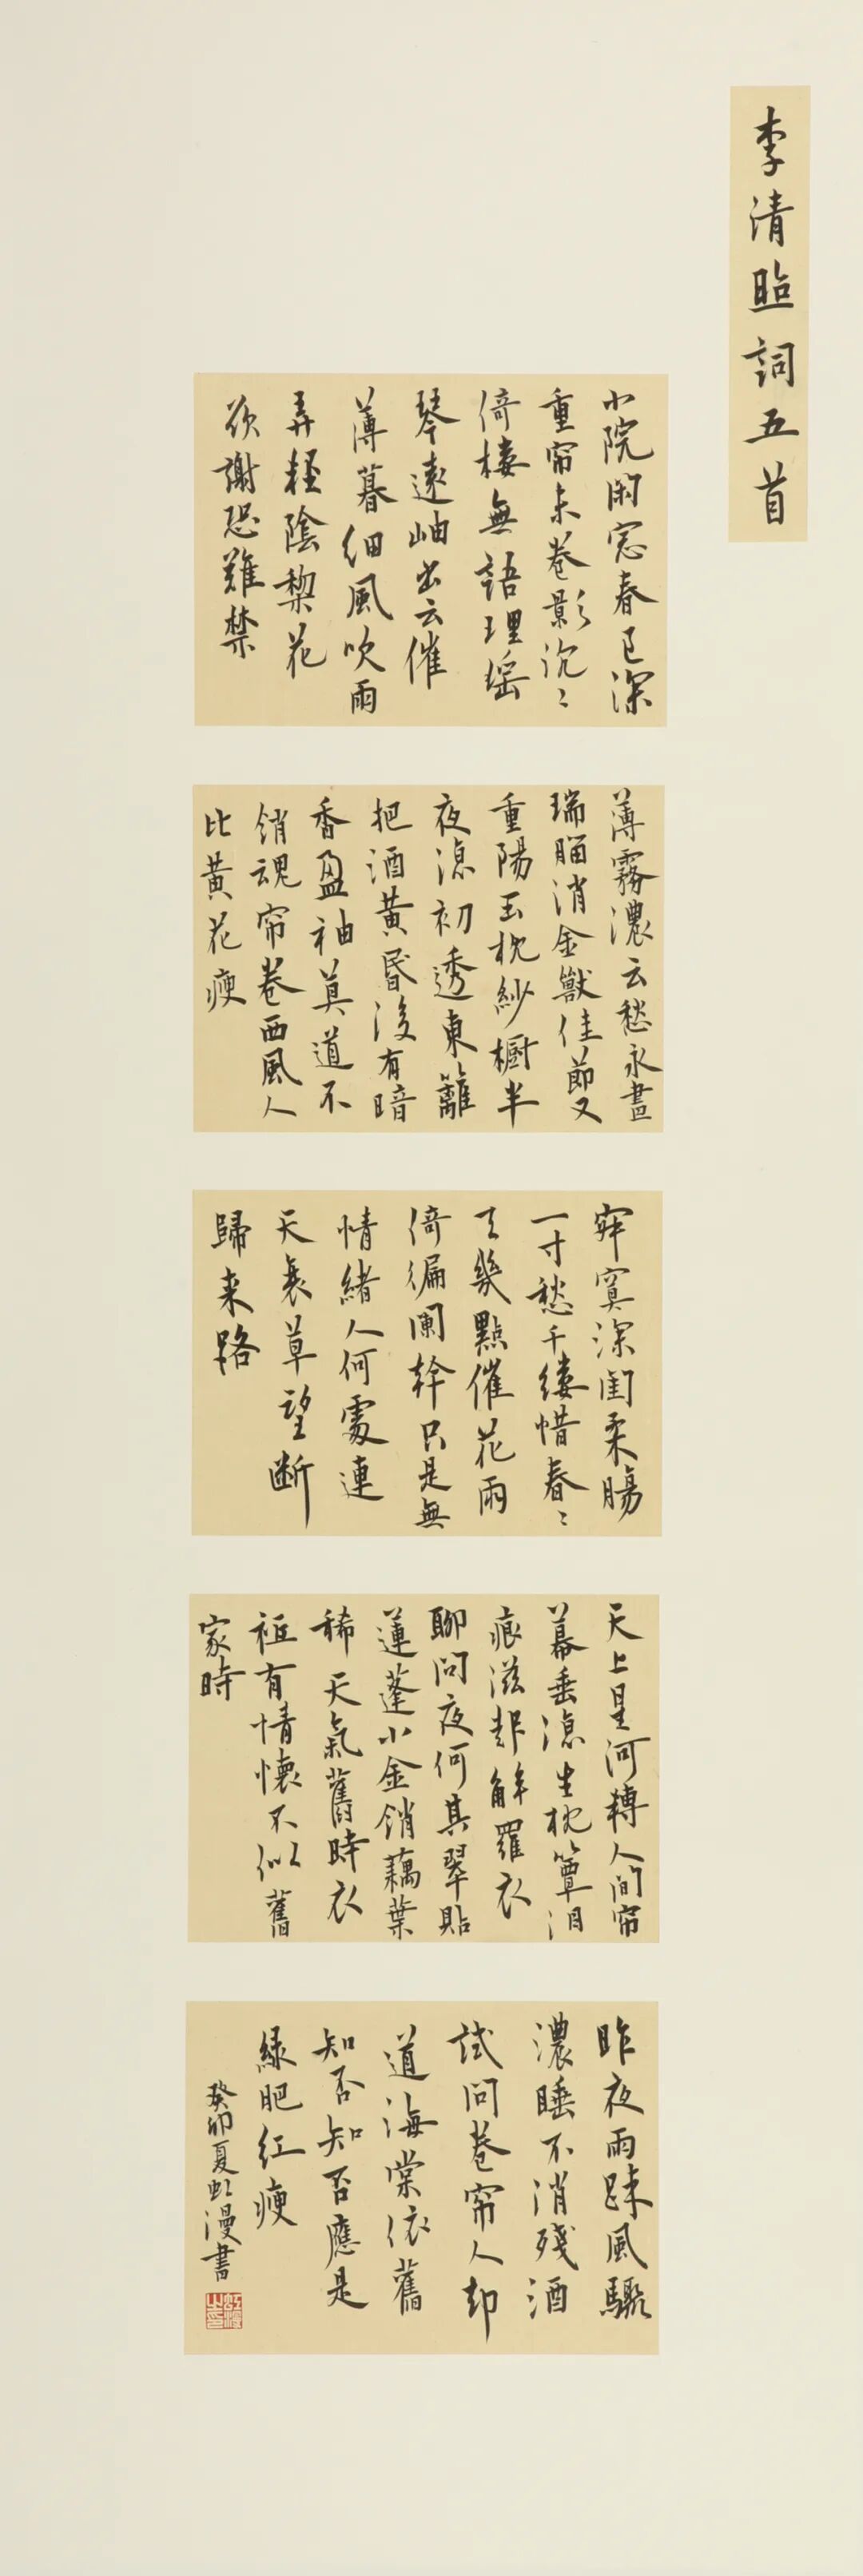 李清照詞五首
小院閑窓春已深
重帘未卷影沉〻
倚樓無語理瑶
琴遠岫出云催
薄暮細風吹雨
弄輕陰梨花
欲謝恐難禁
薄霧濃云愁永晝
瑞腦消金獸佳節又
重陽玉枕紗橱半
夜涼初透東籬
把酒黃昏後有暗
香盈袖莫道不
銷魂帘卷西風人
比黃花瘦
寂寞深閨柔腸
一寸愁千縷惜春〻
去幾點催花雨
倚徧闌幹只是無
情緒人何處連
天衰草望斷
歸来路
天上星河轉人間帘
幕垂涼生枕簟泪
痕滋起解羅衣
聊問夜何其翠貼
蓮蓬小金銷藕葉
稀天氣舊時衣
祗有情懷不似舊
家時
昨夜雨踈風驟
濃睡不消殘酒
試問卷帘人却
道海棠依舊
知否知否應是
緑肥红瘦
癸卯夏虹漫書